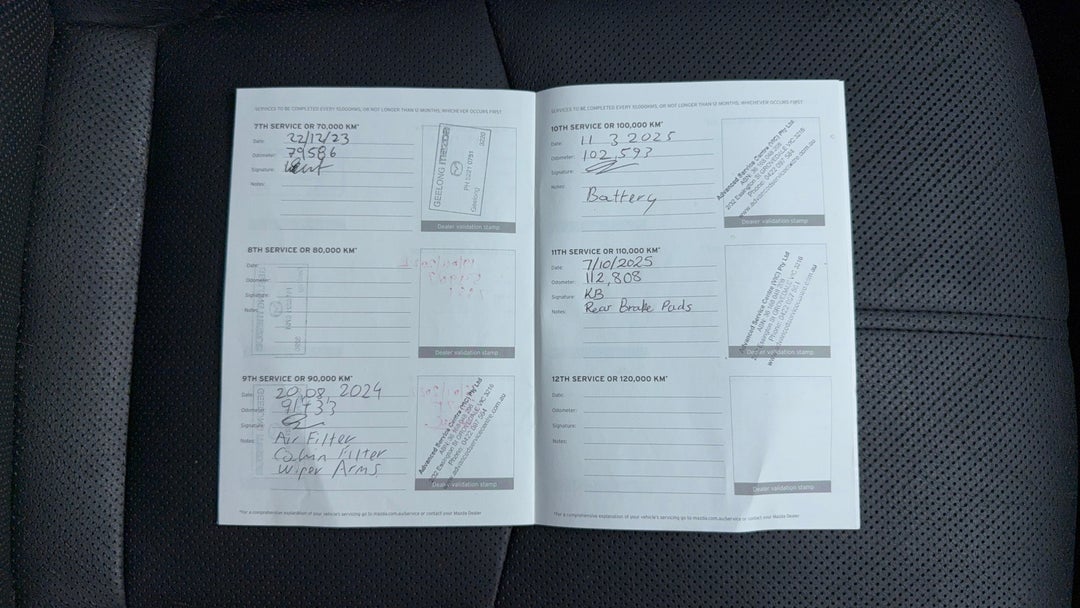 SERVICES TO BE COMPLETED EVERY 10,000KMS, OR NOT LONGER THAN 12 MONTHS, WHICHEVER OCCURS FIRST
7TH SERVICE OR 70,000 KM*
Date: 22/12/23
Odometer: 79586
Signature:
Notes:
GEELONG mazda
PH 5221 0781
Geelong 3220
Dealer validation stamp
8TH SERVICE OR 80,000 KM*
Date:
Odometer:
Signature:
Notes:
Dealer validation stamp
9TH SERVICE OR 90,000 KM*
Date: 20 08, 2024
Odometer: 91733
Signature:
Notes: Air Filter
Cabin Filter
Wiper Arms
Advanced Service Centre (VIC) Pty Ltd
2/32 Essington St GROVEDALE VIC 3216
Phone: 0422 097 564
www.advancedservicecentre.com.au
Dealer validation stamp
*For a comprehensive explanation of your vehicle's servicing go to mazda.com.au/service or contact your Mazda Dealer
SERVICES TO BE COMPLETED EVERY 10,000KMS, OR NOT LONGER THAN 12 MONTHS, WHICHEVER OCCURS FIRST
10TH SERVICE OR 100,000 KM*
Date: 11 3 2025
Odometer: 102,593
Signature:
Notes:
Battery
Advanced Service Centre (VIC) Pty Ltd
2/32 Essington St GROVEDALE VIC 3216
Phone: 0422 097 564
www.advancedservicecentre.com.au
Dealer validation stamp
11TH SERVICE OR 110,000 KM*
Date: 7/10/2025
Odometer: 112,808
Signature: KB
Notes: Rear Brake Pads
Advanced Service Centre (VIC) Pty Ltd
Essington St GROVEDALE VIC 3216
Dealer validation stamp
12TH SERVICE OR 120,000 KM*
Date:
Odometer:
Signature:
Notes:
Dealer validation stamp
*For a comprehensive explanation of your vehicle's servicing go to mazda.com.au/service or contact your Mazda Dealer